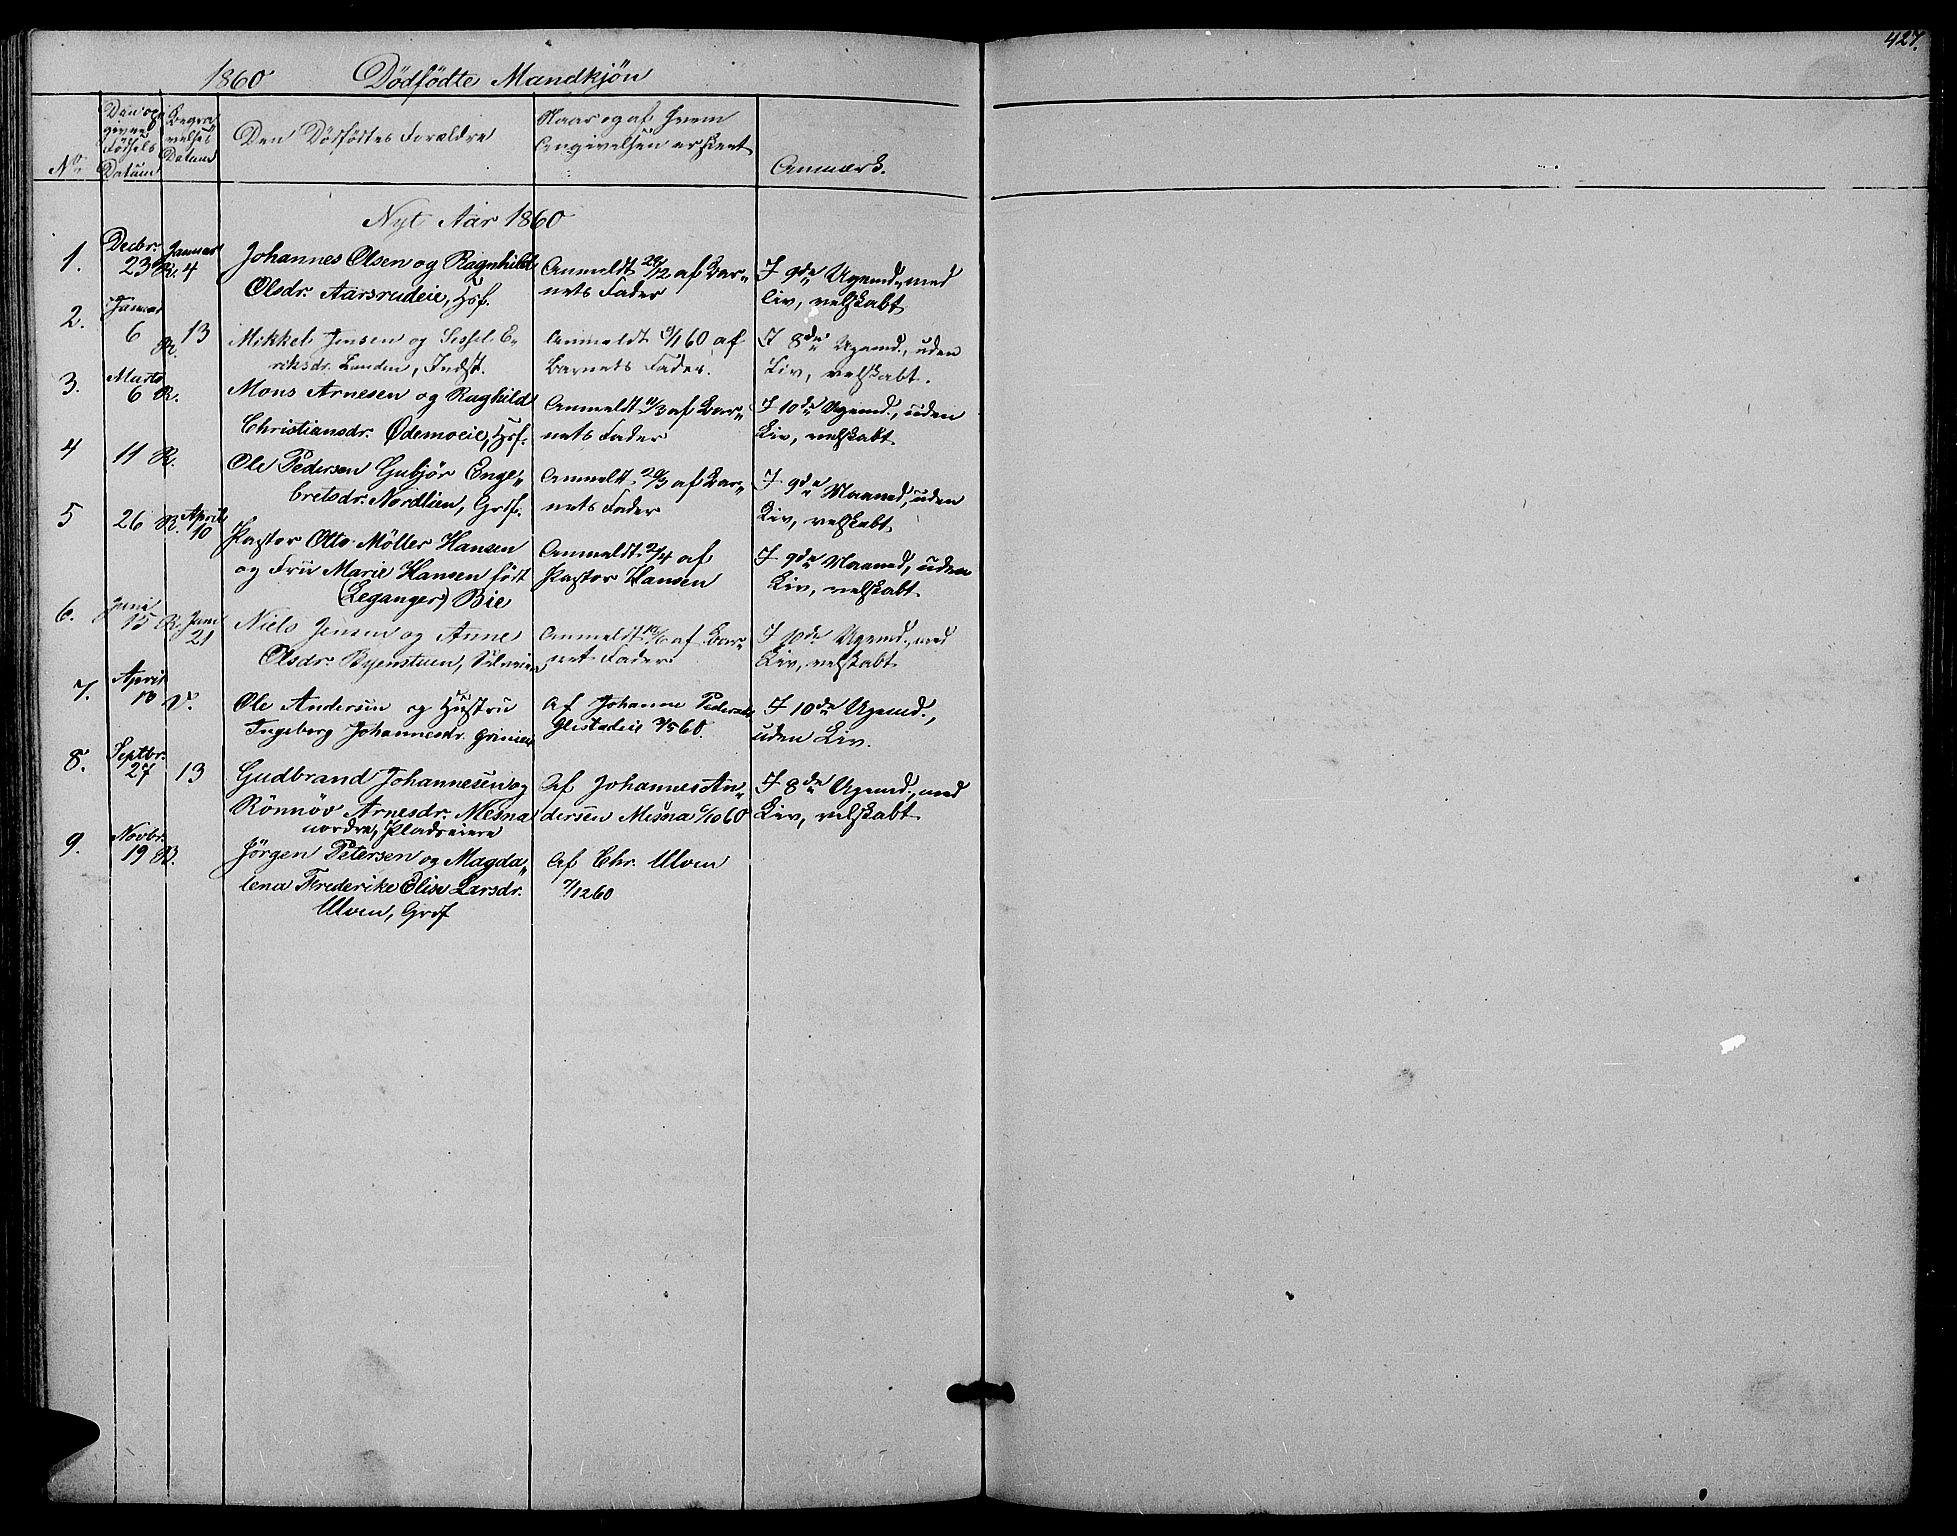 427.
1860 Dödfödte Mandkjön
No.
Den op=
given
Födsels
Datum
Begra=
velses
Datum
Den Dödfödtes Forældre
Naar og af hvem
Angivelsen er skeet
Anmærk.
Nyt Aar 1860
1. Decbr. 23 R. Januar 4
Johannes Olsen og Ragnhild
Olsdr. Aarsrudeie, Hsf.
Anmeldt 29/12 af Bar=
nets Fader
I 9de Ugemd., med
Liv, velskabt
2. Januar 6 R. 13
Mikkel Jensen og Sissel E=
riksdr. Lunden, Indst.
Anmeldt 9/1 60 af
Barnets Fader.
I 8de Ugemd., uden
Liv, velskabt.
3. Marts 6 R.
Mons Arnesen og Raghild
Christiansdr. Ødemoeie, Hsf.
Anmeldt 11/3 af Bar=
nets Fader
I 10de Ugemd., uden
Liv, velskabt.
4 11 R.
Ole Pedersen Gubjør Enge=
bretsdr. Nordlien, Grdf.
Anmeldt 20/3 af Bar=
nets Fader
I 9de Maaned, uden
Liv, velskabt
5 26 R. April 10
Pastor Otto Möller Hansen
og Fru Marie Hansen født
(Leganger) Bie
Anmeldt 2/4 af
Pastor Hansen
I 9de Maaned, uden
Liv, velskabt.
6. Juni 15 R. Juni 21
Niels Jensen og Anne
Olsdr. Byenstuen,
Anmeldt af Bar=
nets Fader
I 10de Ugemd., med
Liv, velskabt
7. April 10 V.
Ole Andersen og Hustru
Ingeborg Johannesdr.
Af Johanne
Glestadeie 3/5 60.
I 10de Ugemd.,
uden Liv.
8. Septbr. 27 13
Gudbrand Johannesen og
Rönnöv Arnesdr. Mesna
nordre, Pladseiere
Af Johannes An=
dersen Mesna 6/10 60
I 8de Ugemd., med
Liv, velskabt
9. Novbr. 19 B.
Jörgen Petersen og Magda=
lena Frederike Elise Larsdr.
Ulven, Grdf
Af Chr. Ulven
7/12 60